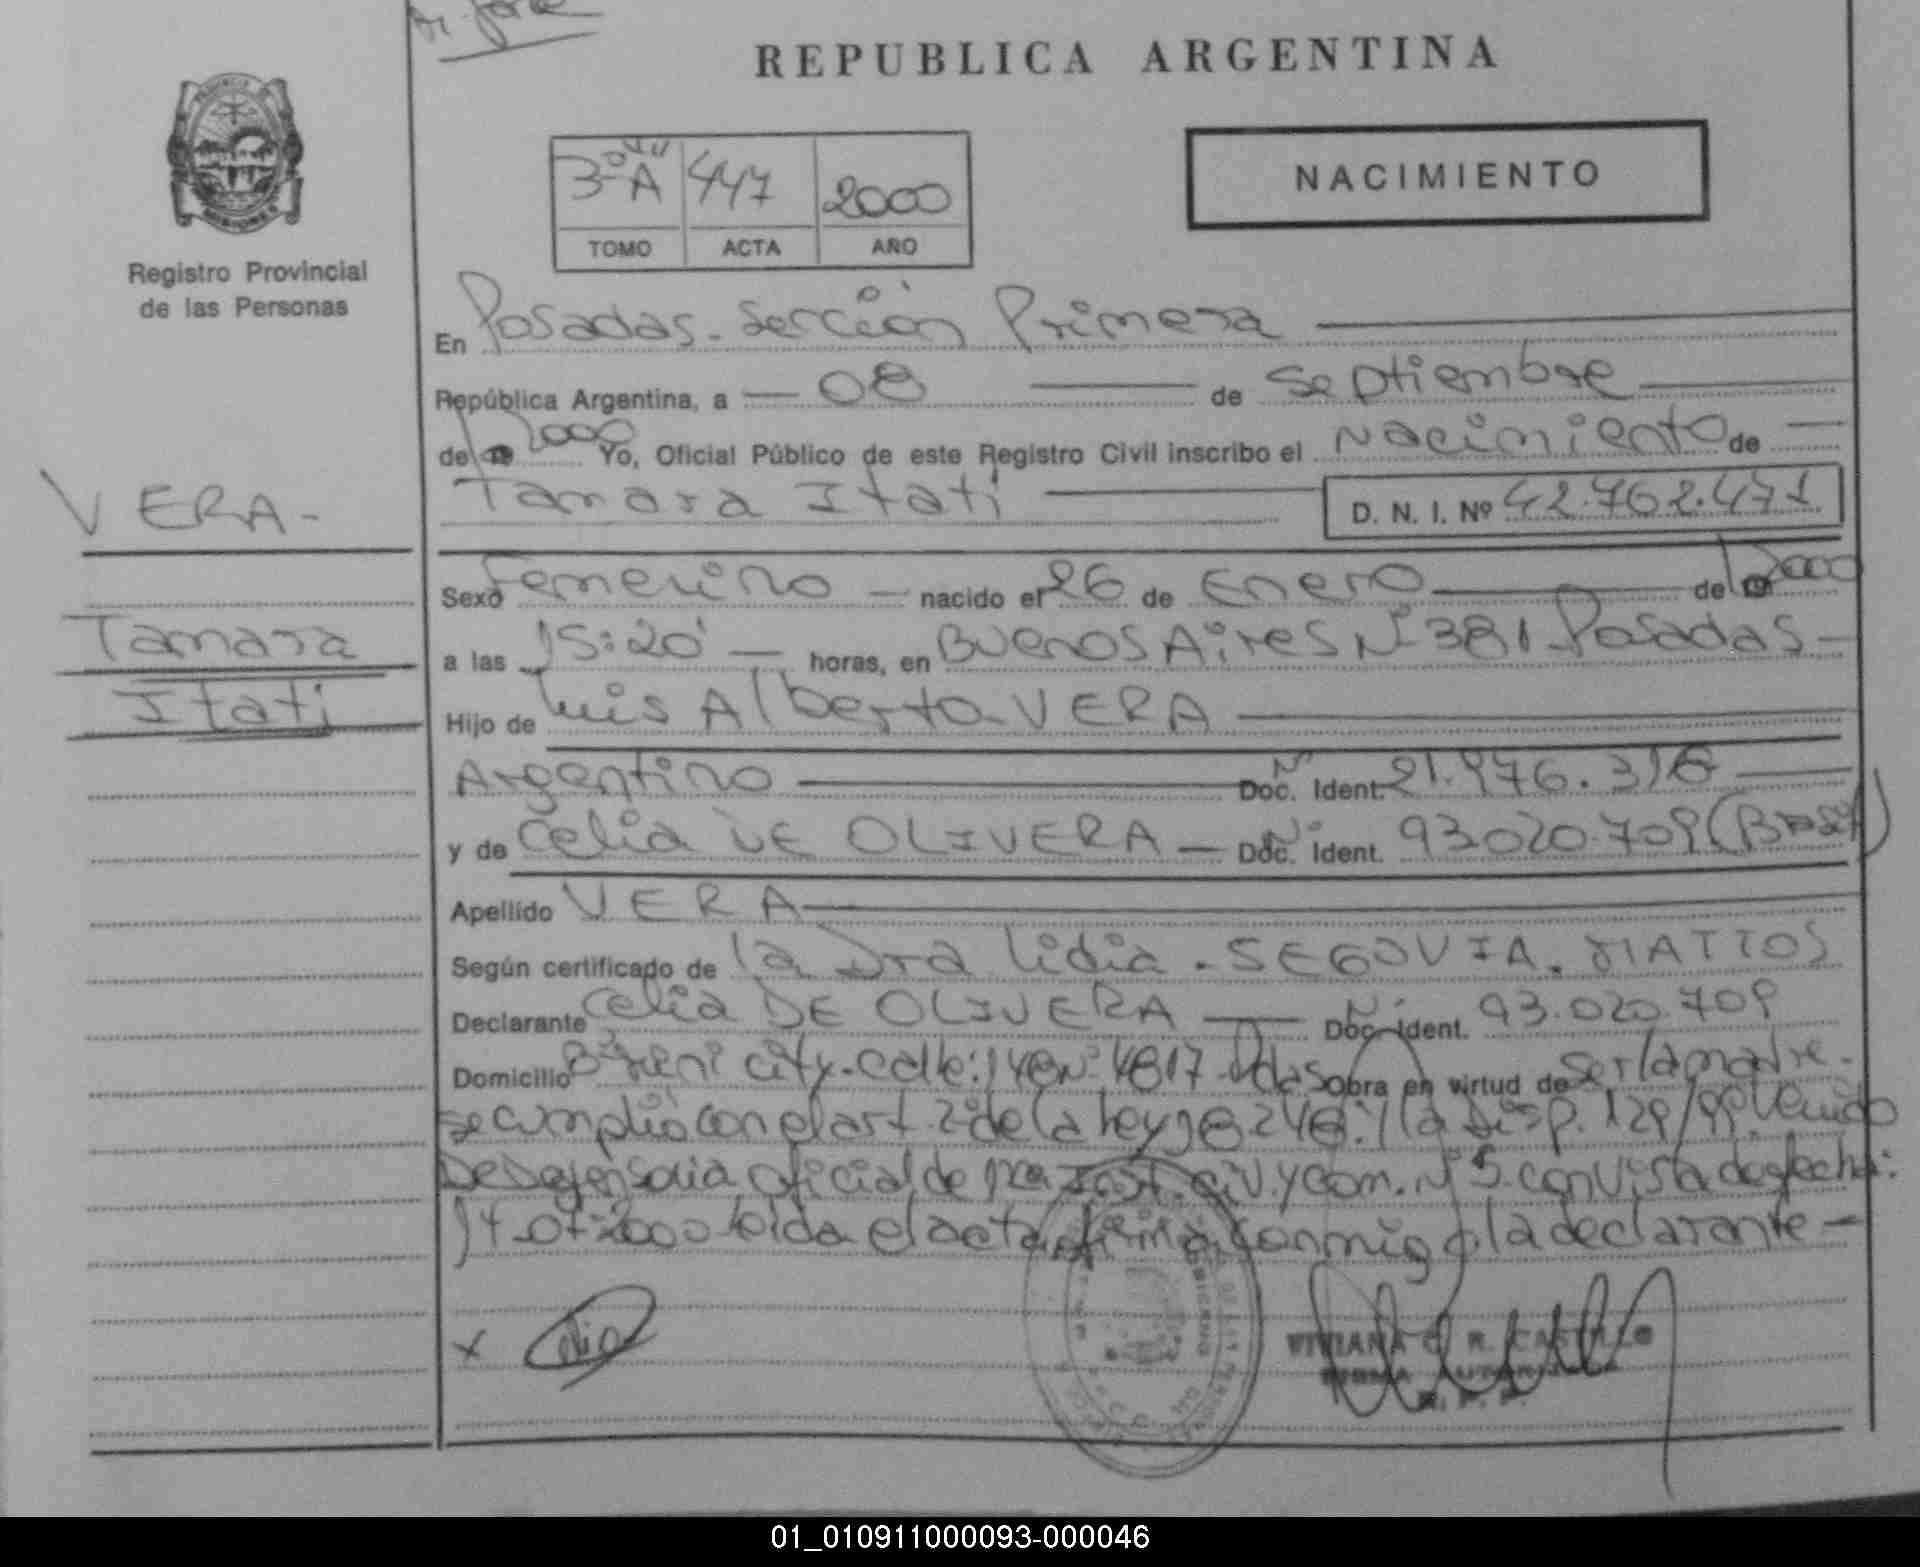 REPUBLICA ARGENTINA
PROVINCIA DE
MISIONES
Registro Provincial
de las Personas
3º A 447 2000
TOMO ACTA AÑO
NACIMIENTO
En Posadas - Sección Primera
República Argentina, a 08 de Septiembre
de 19 2000 Yo, Oficial Público de este Registro Civil inscribo el Nacimiento de
Tamara Itatí D. N. I. Nº 42.762.471
VERA-
Tamara
Itatí
Sexo Femenino nacido el 26 de Enero de 19 2000
a las 15:20 horas, en Buenos Aires Nº 381 Posadas
Hijo de Luis Alberto VERA
Argentino Doc. Ident. Nº 21.976.316
y de Celia DE OLIVERA Doc. Ident. Nº 93.020.709 (Brasil)
Apellido VERA
Según certificado de la Dra Lidia. SEGOVIA. MATTOS
Declarante Celia DE OLIVERA Doc. Ident. Nº 93.020.709
Domicilio Bº Yení city - calle: 148 Nº 4817 - Pdas Obra en virtud de ser la madre -
se cumplió con el art. 2º de la Ley 18248 y la Disp. 129/99. Venido
De Defensoria oficial de 1ra Inst. civ. y com. Nº 5. con vista de fecha:
14-07-2000 leída el acta, firma conmigo la declarante -
x Celia
VIVIANA C. R. CASTILLO
FIRMA AUTORIZADA
R. P. P.
01_010911000093-000046